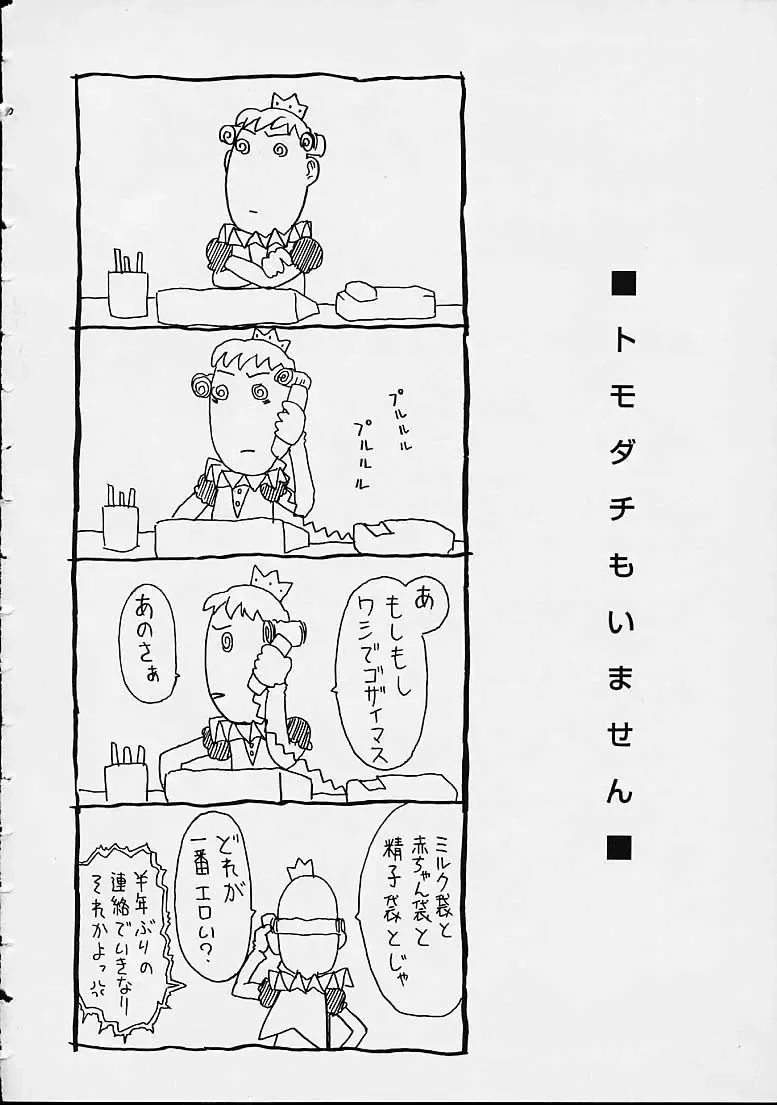 ■トモダチもいません■
プルルル
プルルル
あ
もしもし
ワシでゴザイマス
あのさぁ
ミルク袋と
赤ちゃん袋と
精子袋とじゃ
どれが
一番エロい?
半年ぶりの
連絡でいきなり
それかよっ